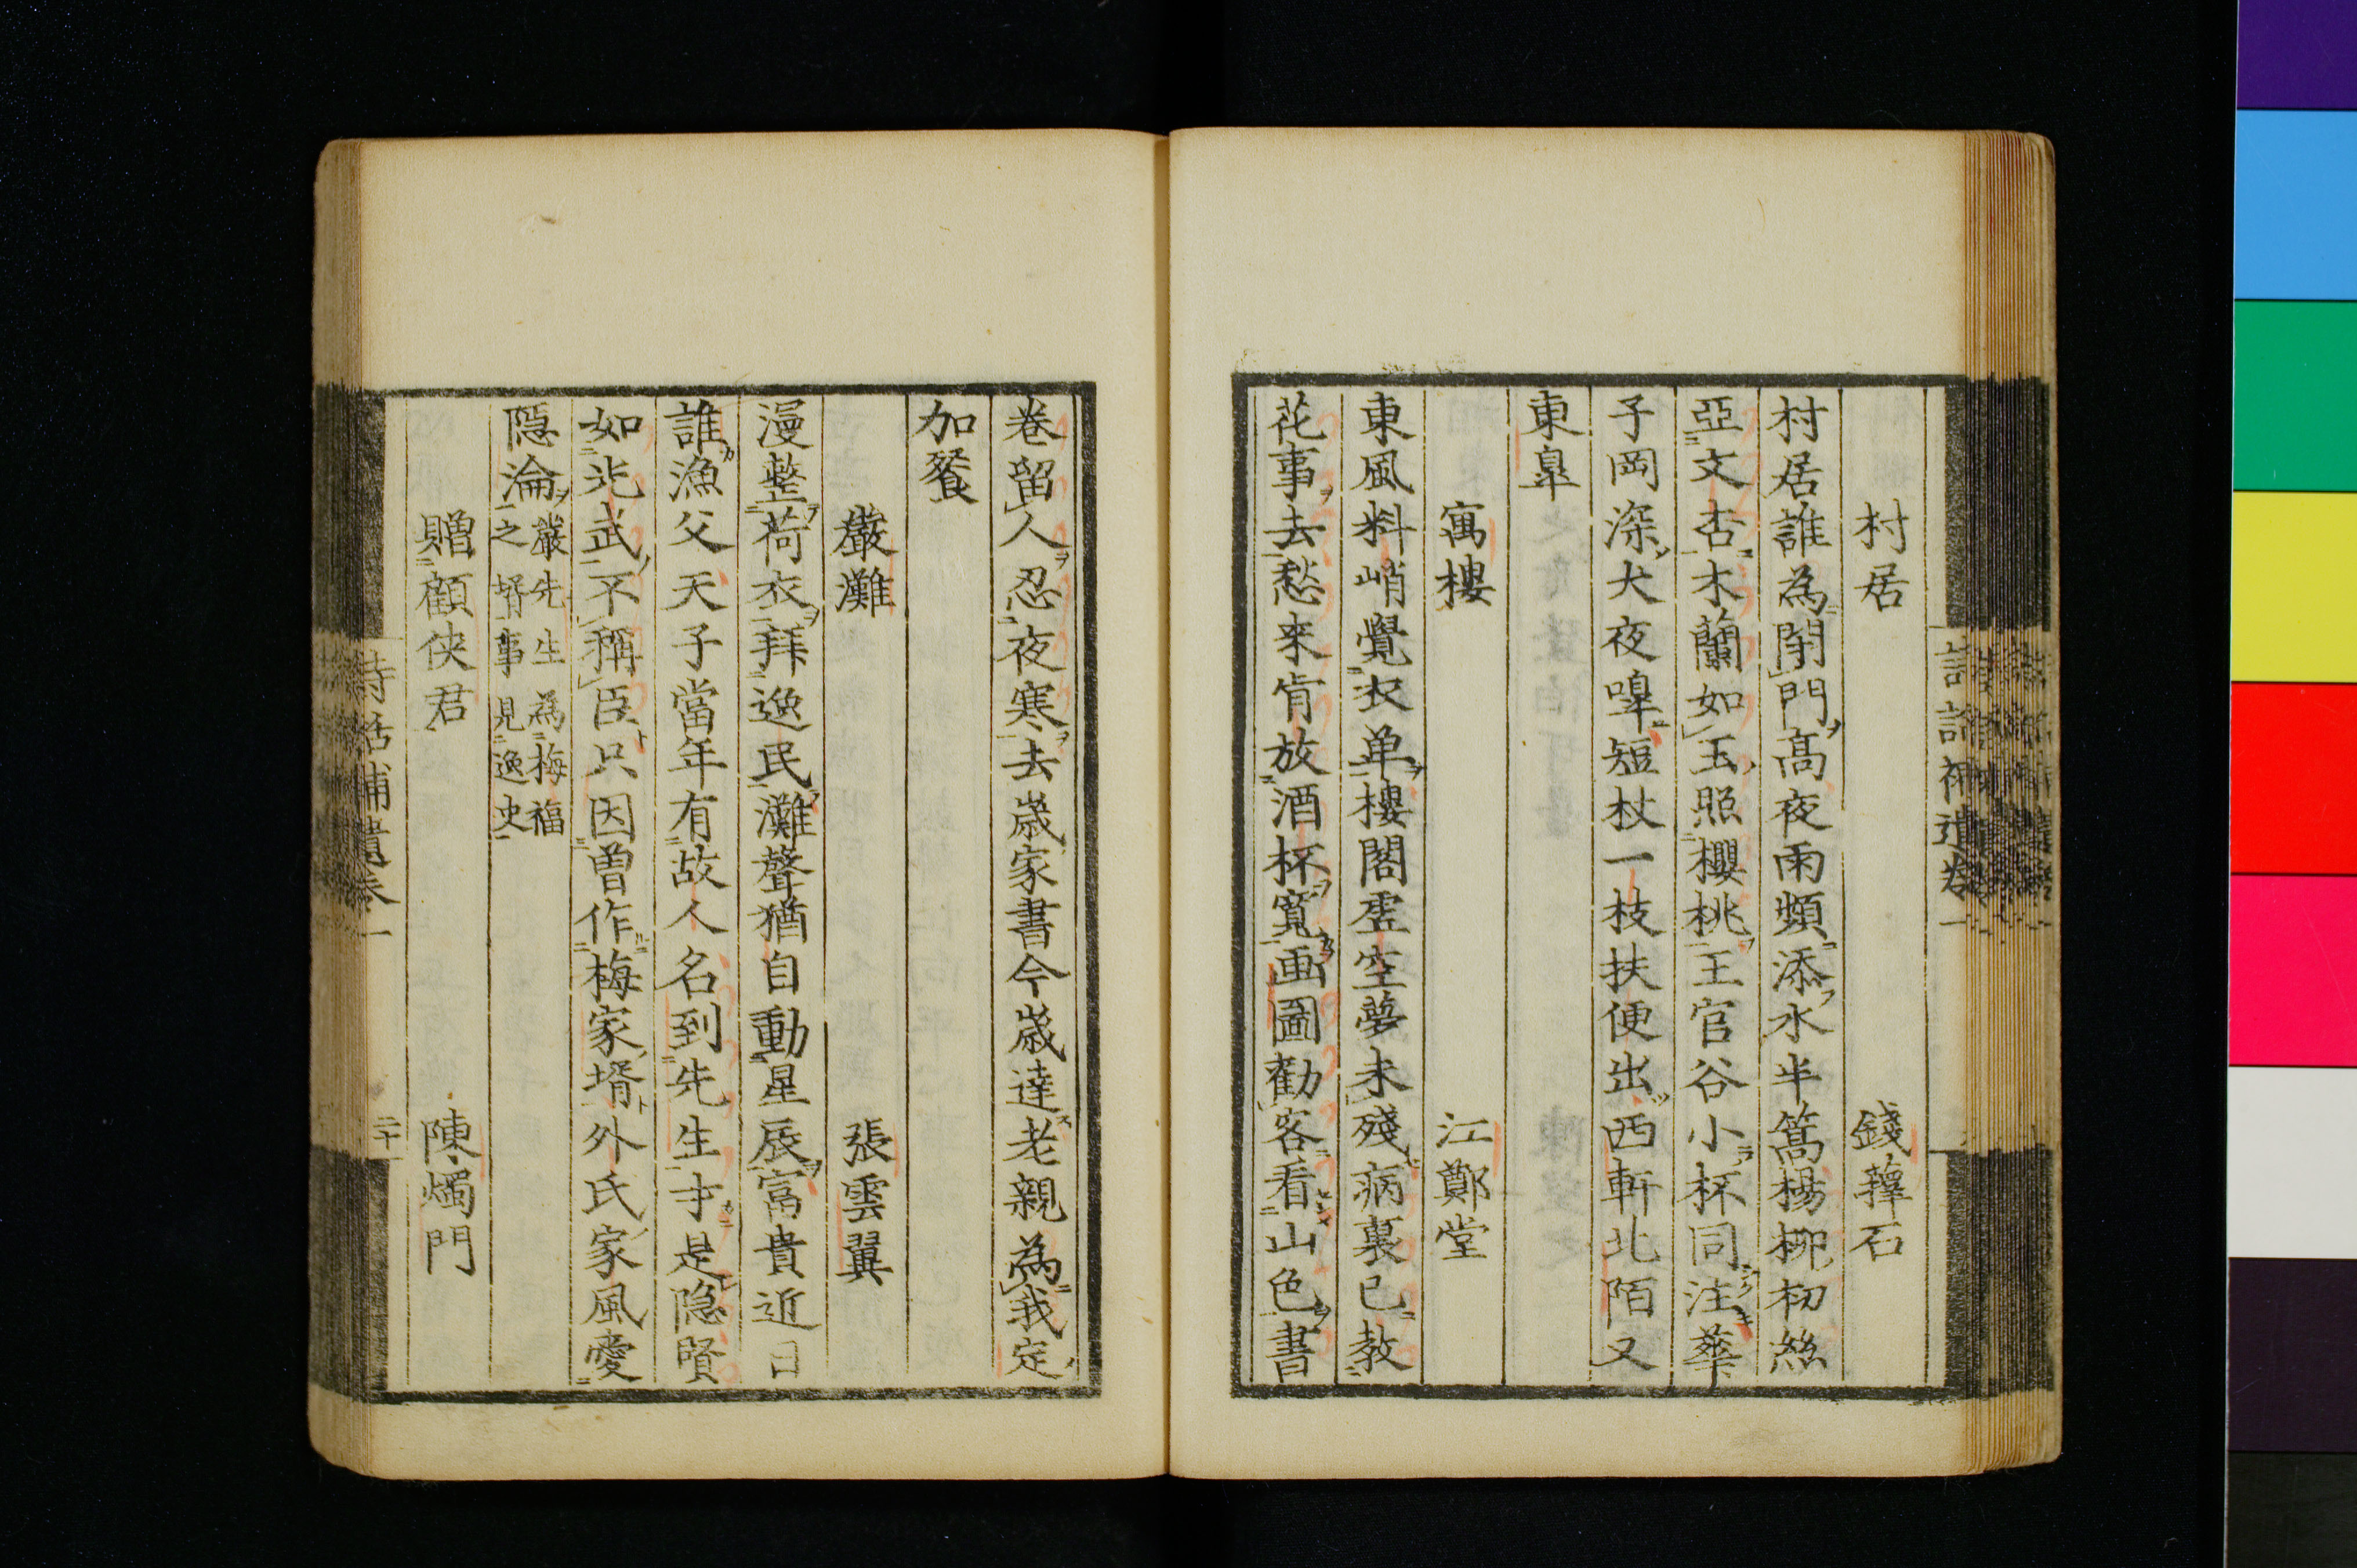 村居 錢蘀石
村居誰為閉門高夜雨頻添水半篙楊柳初絲
亞文杏木蘭如玉照櫻桃王官谷小杯同注華
子岡深犬夜嘷短杖一枝扶便出西軒北陌又
東皐
寓樓 江鄭堂
東風料峭覺衣单樓閣虛空夢未殘病裏已教
花事去愁来肯放酒杯寬画圖勸客看山色書
卷留人忍夜寒去歳家書今歳達老親為我定
加餐
嚴灘 張雲翼
漫整荷衣拜逸民灘聲猶自動星辰富貴近日
誰漁父天子當年有故人名到先生才是隐賢
如光武不稱臣只因曽作梅家壻外氏家風愛
隠淪嚴先生為梅福
之壻事見逸史
贈顧侠君 陳燭門
詩話補遺卷一
二十